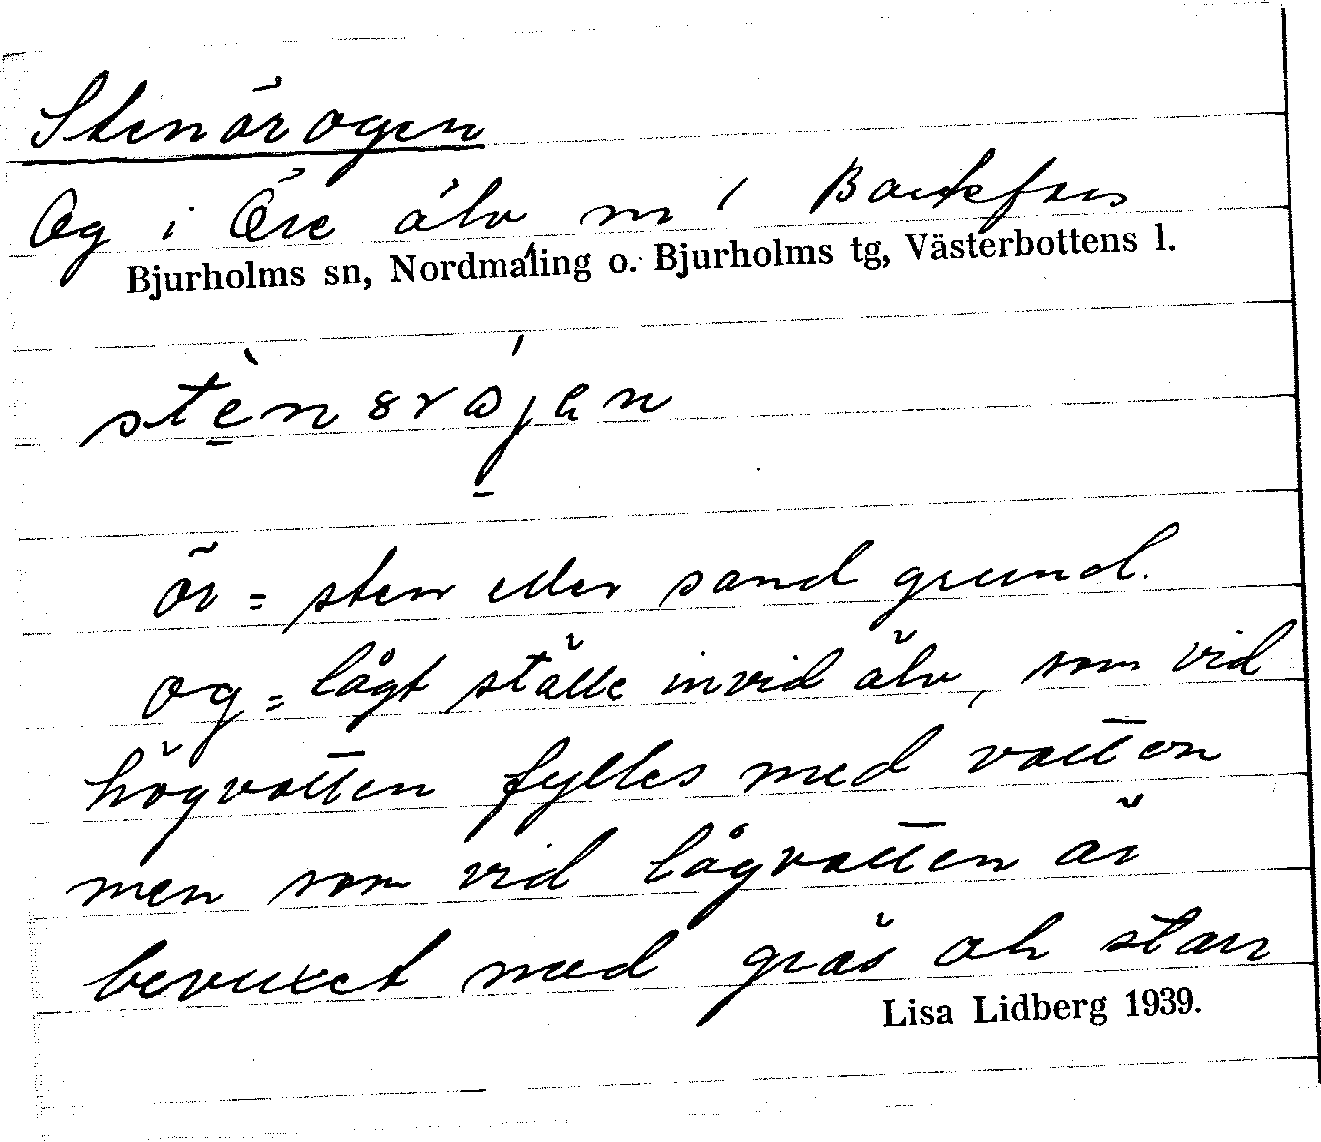 Stenörogen
Og i Öre älv m
Bjurholms sn, Nordmaling o. Bjurholms tg, Västerbottens l.
ör = sten eller sand grund.
og = lågt ställe invid älv, som vid
högvatten fylles med vatten
men som vid lågvatten är
bevuxet med gräs och starr
Lisa Lidberg 1939.